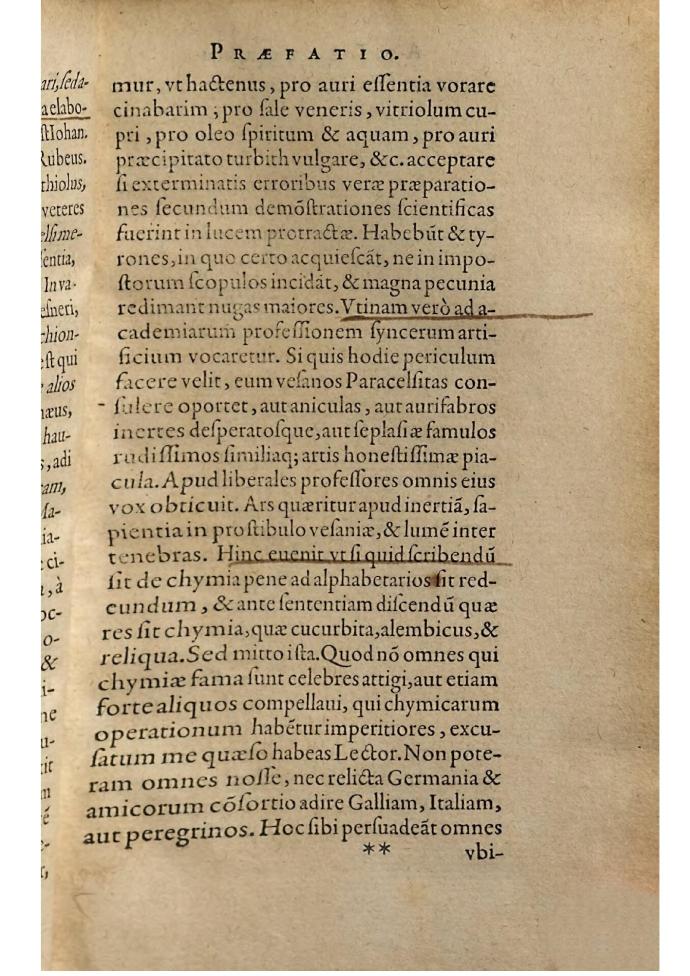 PRÆFATIO.
mur, vt hactenus, pro auri eſſentia vorare
cinabarim, pro ſale veneris, vitriolum cu-
pri, pro oleo ſpiritum & aquam, pro auri
præcipitato turbith vulgare, &c. acceptare
ſi exterminatis erroribus veræ præparatio-
nes ſecundum demõſtrationes ſcientificas
fuerint in lucem protractæ. Habebũt & ty-
rones, in quo certo acquieſcãt, ne in impo-
ſtorum ſcopulos incidãt, & magna pecunia
redimant nugas maiores. Vtinam verò ad a-
cademiarum profeſſionem ſyncerum arti-
ficium vocaretur. Si quis hodie periculum
facere velit, eum veſanos Paracelſitas con-
ſulere oportet, aut aniculas, aut aurifabros
inertes deſperatoſque, aut ſeplaſiæ famulos
rudiſſimos ſimiliaq; artis honeſtiſſimæ pia-
cula. Apud liberales profeſſores omnis eius
vox obticuit. Ars quæritur apud inertiã, ſa-
pientia in proſtibulo veſaniæ, & lumẽ inter
tenebras. Hinc euenit vt ſi quid ſcribendũ
ſit de chymia pene ad alphabetarios ſit red-
eundum, & ante ſententiam diſcendũ quæ
res ſit chymia, quæ cucurbita, alembicus, &
reliqua. Sed mitto iſta. Quod nõ omnes qui
chymiæ fama ſunt celebres attigi, aut etiam
forte aliquos compellaui, qui chymicarum
operationum habẽtur imperitiores, excu-
ſatum me quæſo habeas Lector. Non pote-
ram omnes noſſe, nec relicta Germania &
amicorum cõſortio adire Galliam, Italiam,
aut peregrinos. Hoc ſibi perſuadeãt omnes
** vbi-